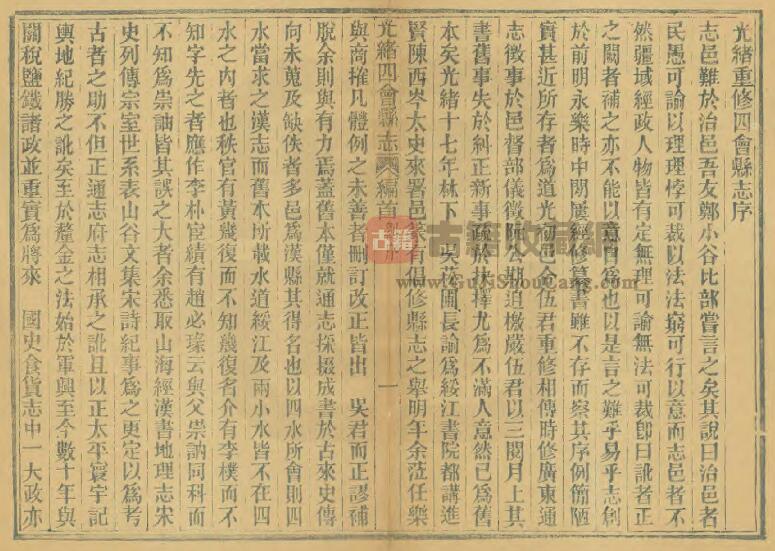 光緒重修四會縣志序
志邑難於治邑吾友鄭小谷比部嘗言之矣其說曰治邑者
民愚可諭以理理悖可裁以法法窮可行以意而志邑者不
然疆域經政人物皆有定無理可諭無法可裁卽曰訛者正
之闕者補之亦不能以意自爲也以是言之難乎易乎志創
於前明永樂時中間屢經修篡書雖不存而察其序例簡陋
實甚近所存者爲道光初邑令伍君重修相傳時修廣東通
志徵事於邑督部儀徵阮公期迫檄嚴伍君以三閱月上其
書舊事失於糾正新事疏於抉擇尤爲不滿人意然已爲舊
本矣光緒十七年林下 吳
圃長諭爲綏江書院都講進
光緒四會縣志 編首
一
賢陳西岑太史來署邑
有倡修縣志之舉明年余蒞任樂
與商搉凡體例之未善者刪訂改正皆出 吳君而正謬補
脫余則與有力焉蓋舊本僅就通志採掇成書於古來史傳
向未蒐及缺佚者多邑爲漢縣其得名也以四水所會則四
水當求之漢志而舊本所載水道綏江及兩小水皆不在四
水之內者也秩官有黃幾復而不知幾復名介有李樸而不
知字先之者應作李朴宦績有趙必
云與父崇訥同科而
不知爲崇訕皆其誤之大者余悉取山海經漢書地理志宋
史列傳宗室世系表山谷文集宋詩紀事爲之更定以爲考
古者之助不但正通志府志相承之訛且以正太平寰宇記
輿地紀勝之訛矣至於釐金之法始於軍興至今數十年與
關稅鹽鐵諸政並重實爲將來 國史食貨志中一大政亦
古籍
古籍收藏網
www.GuJiShouCang.com